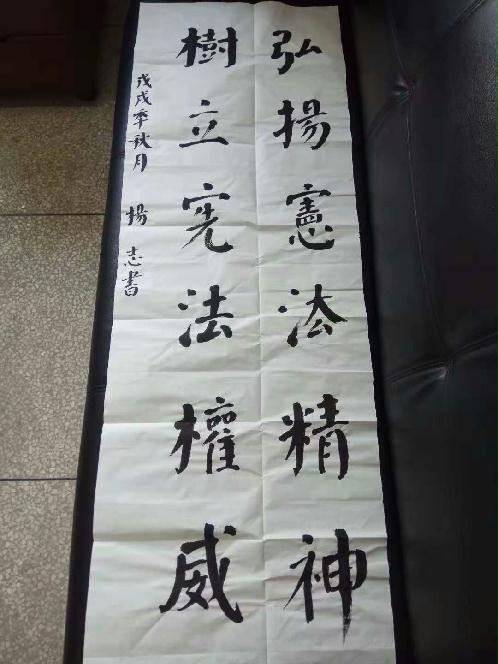 弘揚憲法精神
樹立宪法權威
戊戌季秋月 楊志書